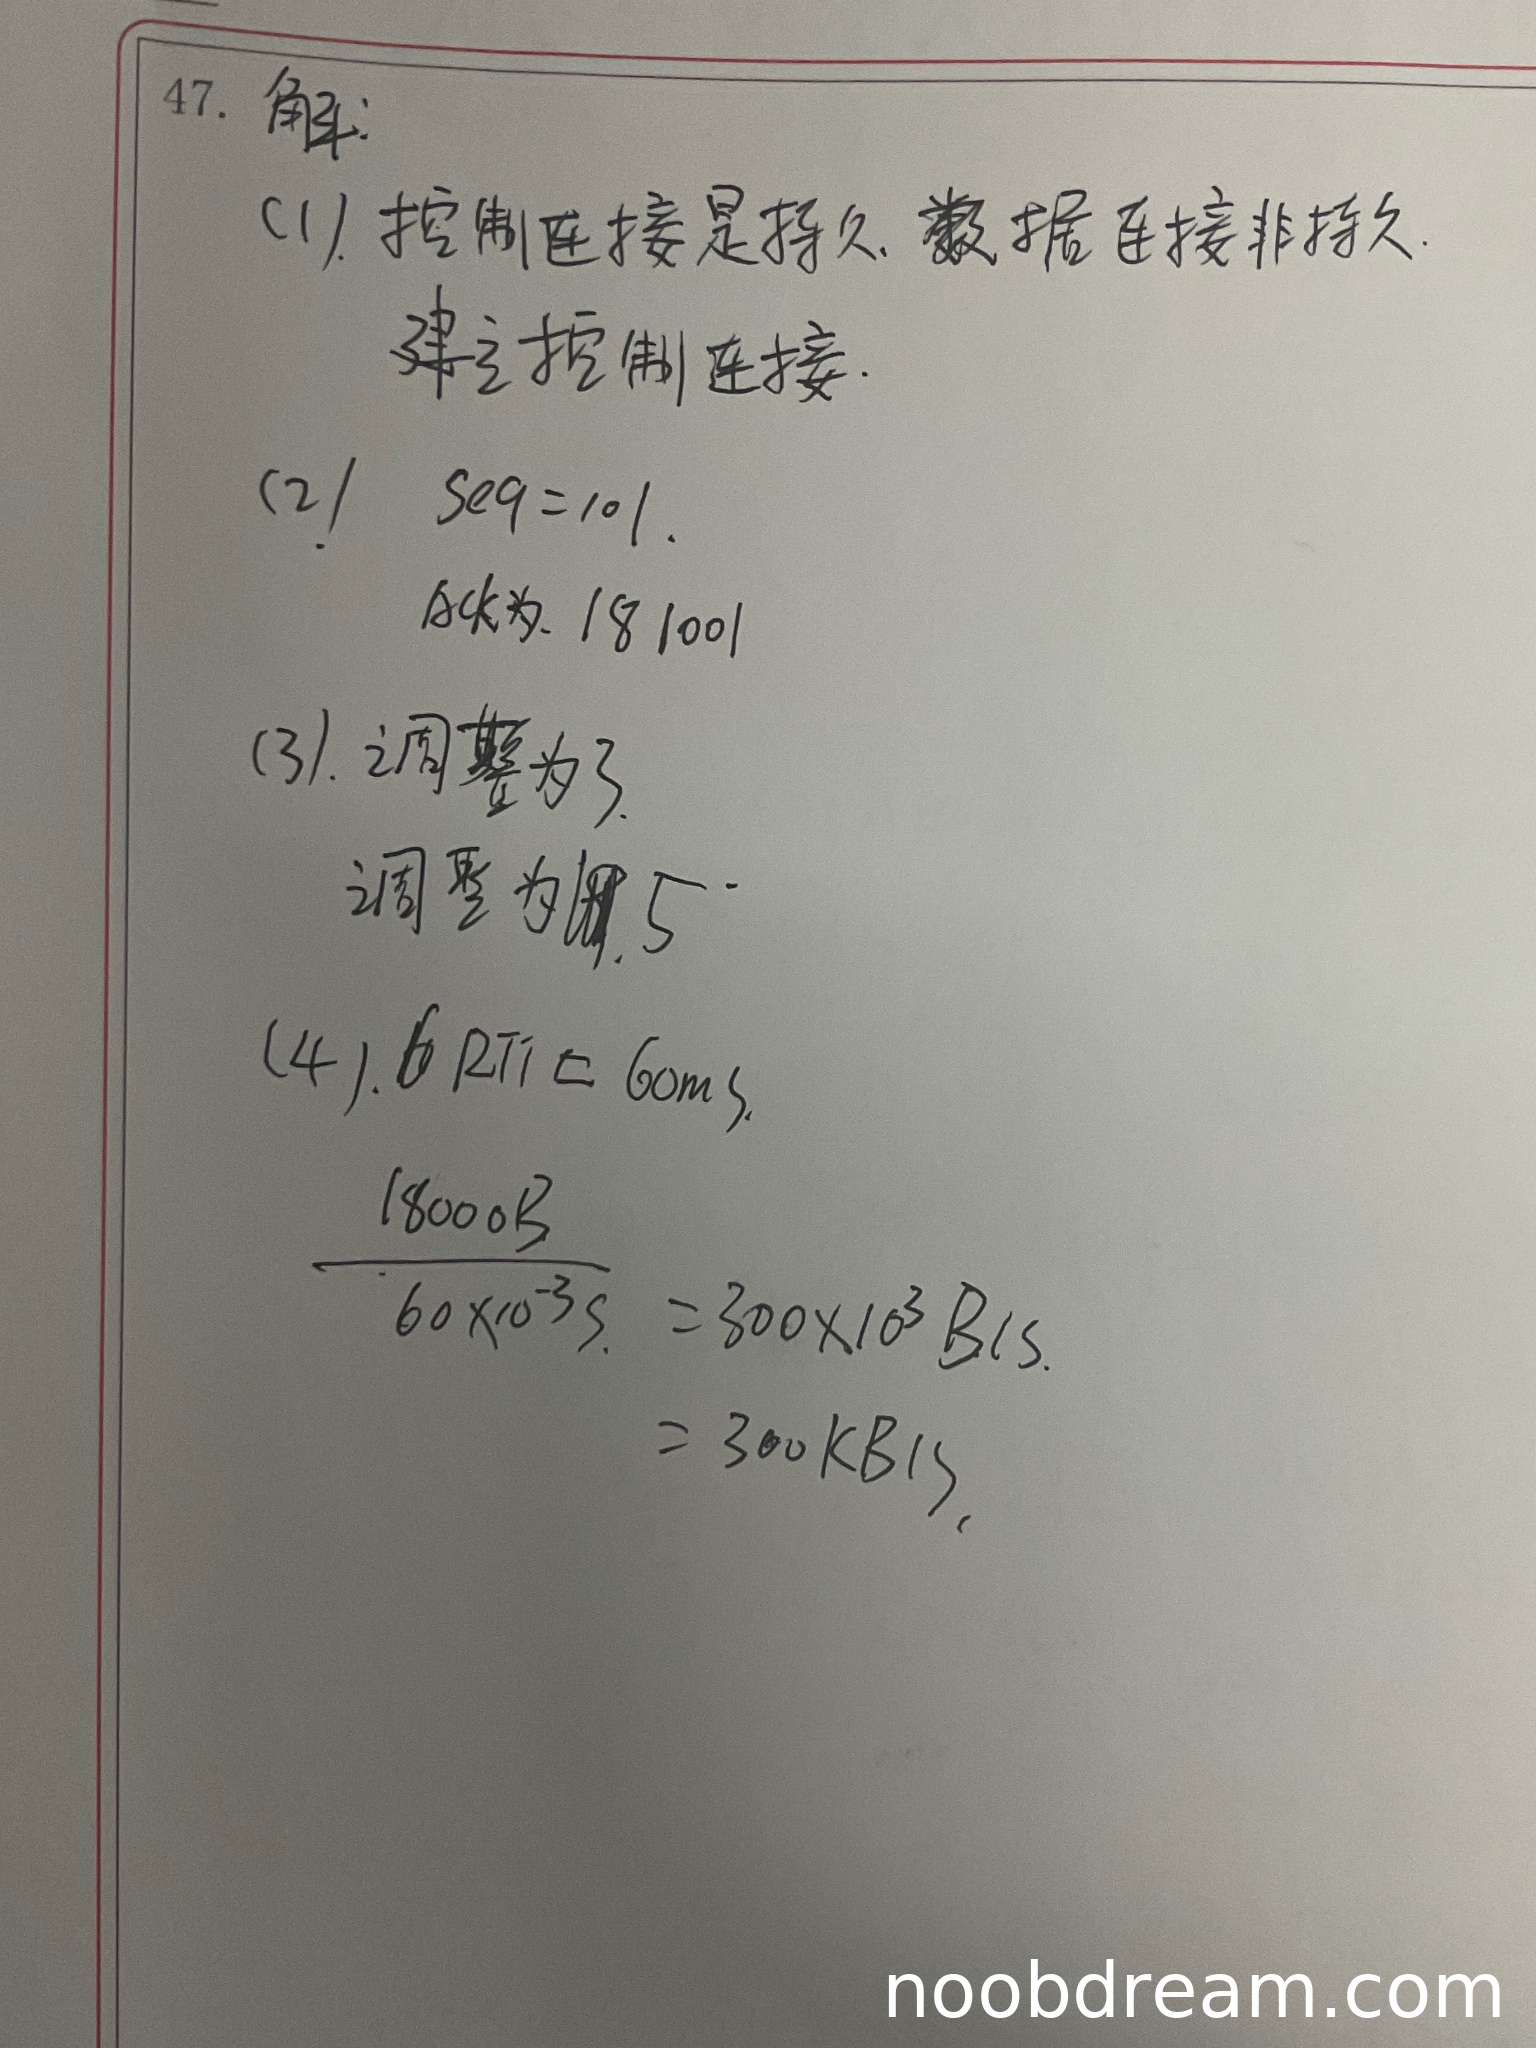 47. 解:
(1). 控制连接是持久. 数据连接非持久.
建立控制连接.
(2). seq=101.
Ack为. 181001
(3). 调整为3.
调整为 5.
(4). 6 RTT = 60ms.
18000B
60×10⁻³s. =300×10³B/s.
= 300KB/s.
noobdream.com